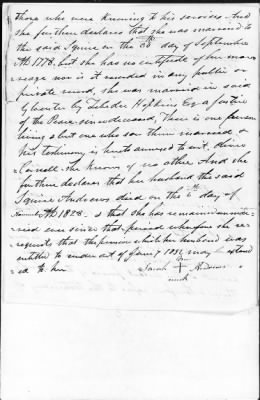 those who were knowing to his services. And
she further declares that she was married to
the said Squire on the day of September
AD. 1778. but she has no certificate of her mar-
reage nor is it recorded in any public or
private record, she was married in said
Glocester by Hopkins Esq a Justice
of the Peace since deceased, There is one person
living & but one who saw them married &
his testimony is hereto annexed to wit.
she knows of no other And she
further declares that her husband the said
Squire Andrews died on the day of
AD 1828. & that she has remained unmar-
ried ever since that period wherefore she re-
quests that the pension which her husband was
entitled to under act of June 7 1832 may be extend
ed to her
Sarah + Andrews
mark